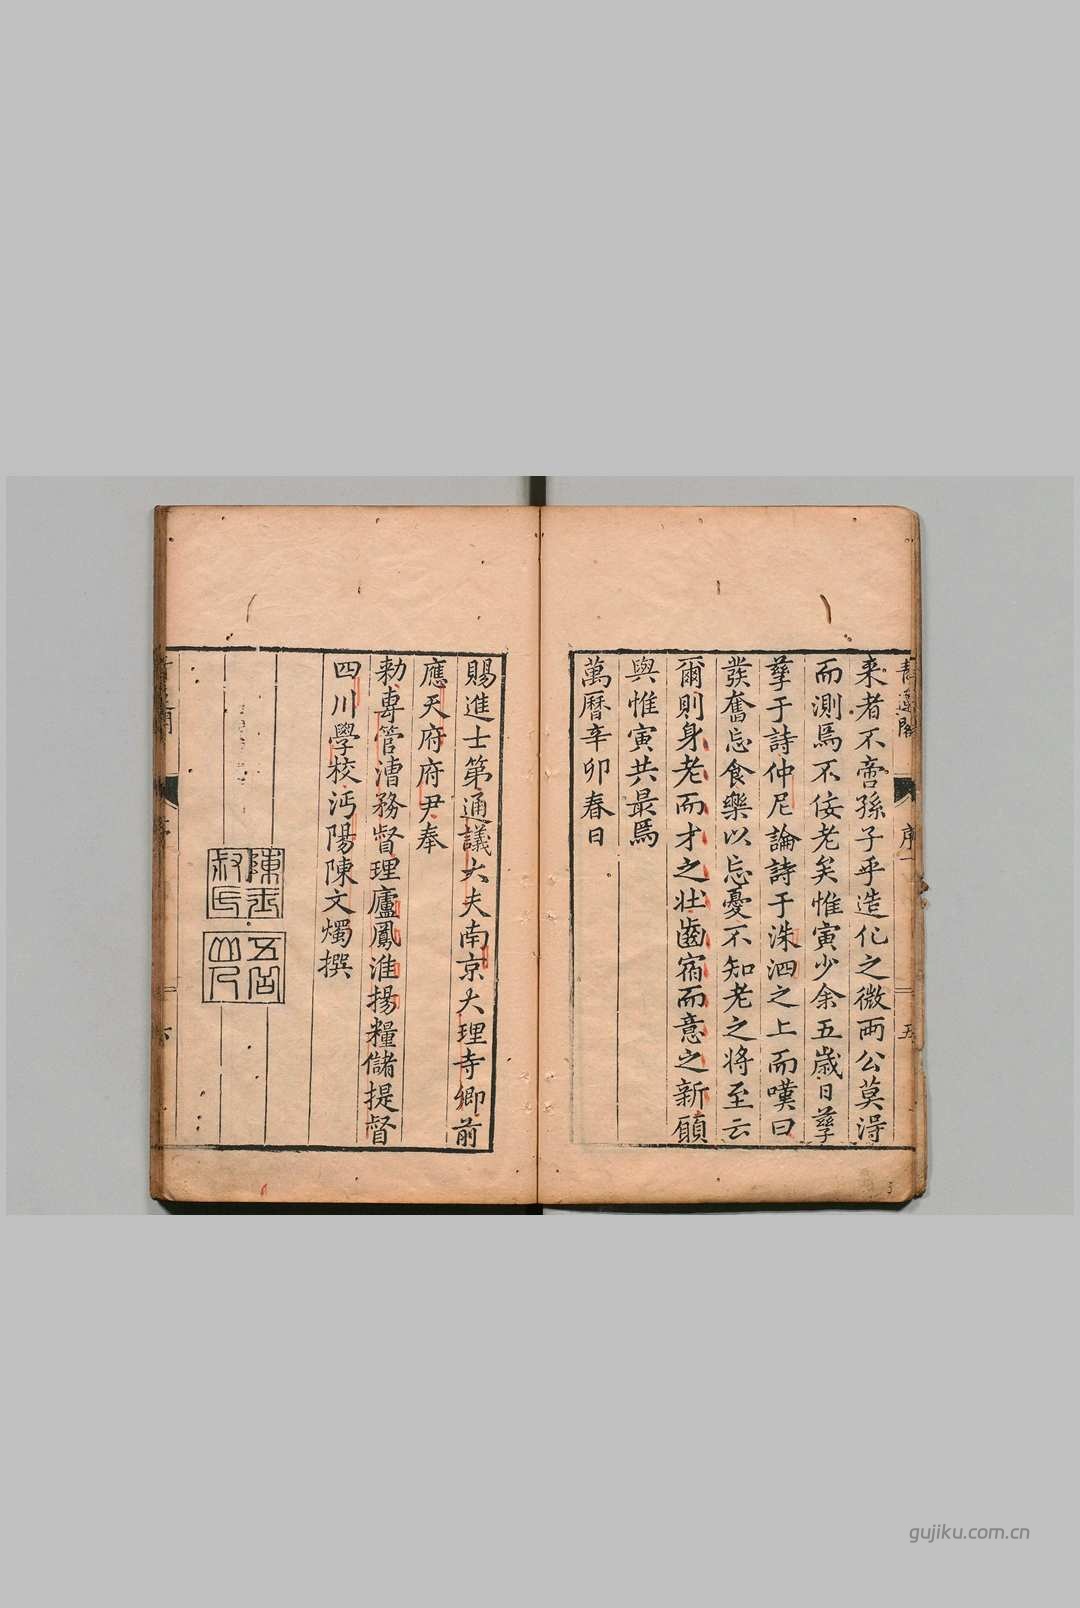 来者不啻孫子乎造化之微两公莫淂
而測焉不佞老矣惟寅少余五歲日孳
孳于詩仲尼論詩于洙泗之上而嘆曰
發奮忘食樂以忘憂不知老之將至云
爾則身老而才之壯齒宿而意之新願
與惟寅共最焉
萬曆辛卯春日
序一
五
賜進士第通議大夫南京大理寺卿前
應天府府尹奉
勅專管漕務督理廬鳳淮揚糧儲提督
四川學校沔陽陳文燭撰
gujiku.com.cn